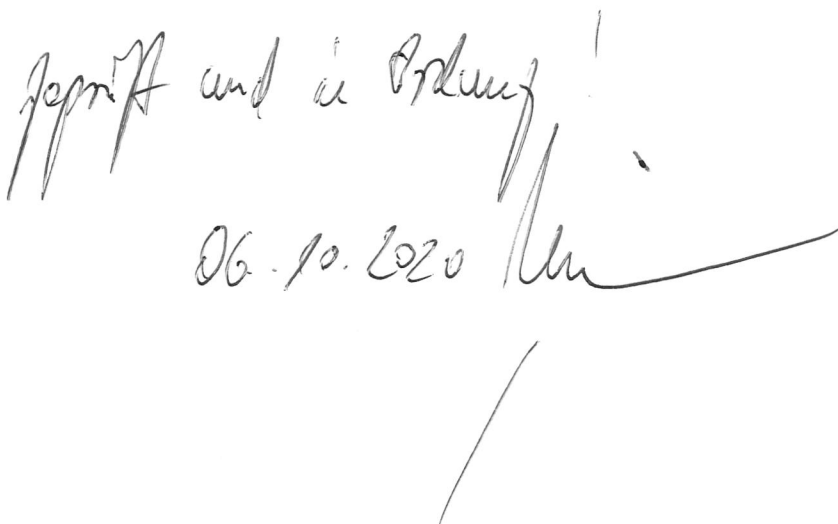 geprüft und in Ordnung!
06.10.2020